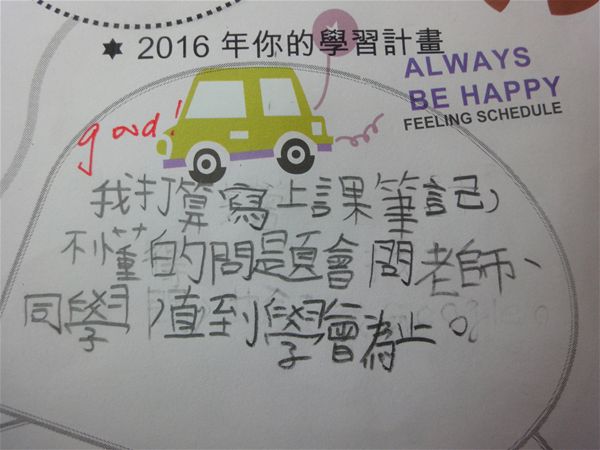 ★ 2016 年你的學習計畫
ALWAYS
BE HAPPY
FEELING SCHEDULE
good!
我打算寫上課筆記，
不懂的問題會問老師、
同學，直到學會為止。